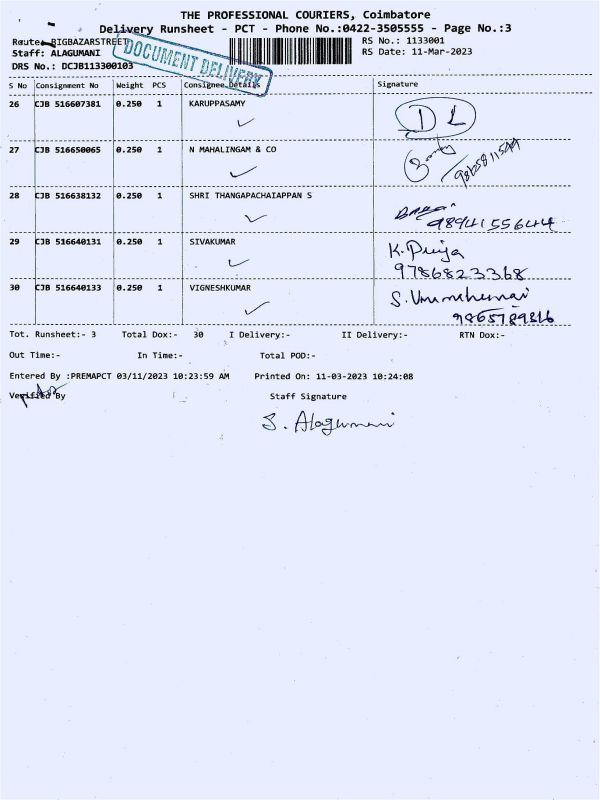 THE PROFESSIONAL COURIERS, Coimbatore
Delivery Runsheet - PCT - Phone No.:0422-3505555 - Page No.:3
Route: BIGBAZARSTREET RS No.: 1133001
Staff: ALAGUMANI RS Date: 11-Mar-2023
DRS No.: DCJB113300103
DOCUMENT DELIVERY
S No Consignment No Weight PCS Consignee Details Signature
26 CJB 516607381 0.250 1 KARUPPASAMY DL
27 CJB 516650065 0.250 1 N MAHALINGAM & CO
28 CJB 516638132 0.250 1 SHRI THANGAPACHAIAPPAN S
9894155644
29 CJB 516640131 0.250 1 SIVAKUMAR K. Priya
9786823368
30 CJB 516640133 0.250 1 VIGNESHKUMAR S.
9865789816
Tot. Runsheet:- 3 Total Dox:- 30 I Delivery:- II Delivery:- RTN Dox:-
Out Time:- In Time:- Total POD:-
Entered By :PREMAPCT 03/11/2023 10:23:59 AM Printed On: 11-03-2023 10:24:08
Verified By Staff Signature
S. Alagumani